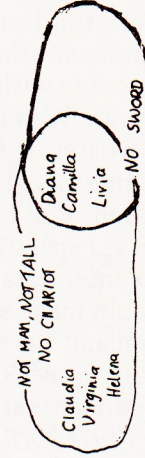 NOT MAN, NOT TALL
NO CHARIOT
Claudia
Virginia
Helena
Diana
Camilla
Livia
NO SWORD